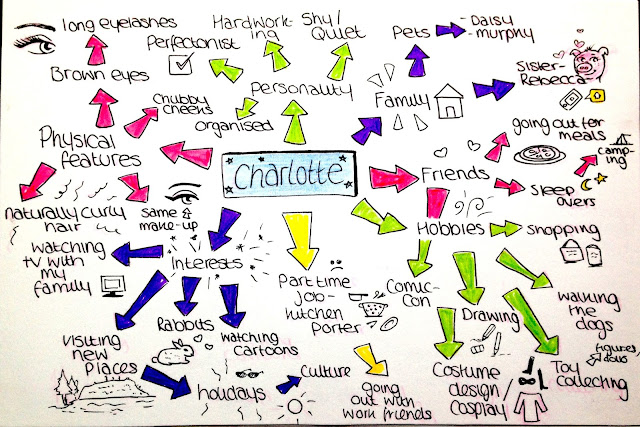 long eyelashes
Hardwork-
ing
Shy/
Quiet
Pets
-Daisy
-murphy
Perfectonist
Brown eyes
Personality
Sister-
Rebecca
Chubby
cheeks
organised
Family
going out for
meals
Physical
features
Charlotte
Friends
camp-
ing
Sleep
overs
naturally curly
hair
same &
make-up
Hobbies
Shopping
watching
tv with
my
family
Interests
Part time
job-
kitchen
porter
Comic-
Con
Drawing
walking
the
dogs
visiting
new
places
Rabbits
watching
cartoons
figures,
dolls
Toy
collecting
holidays
Culture
going
out with
work friends
Costume
design/
Cosplay